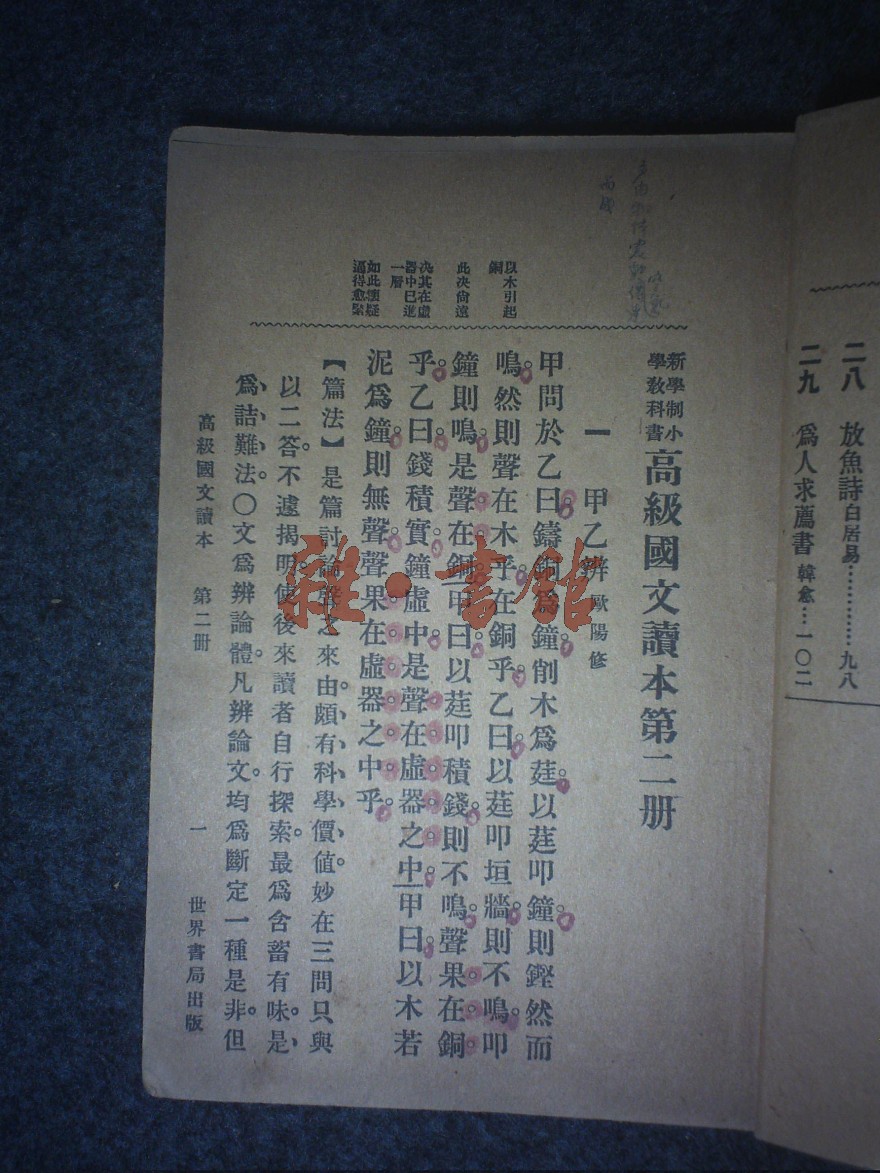 二八　放魚詩 白居易…………九八
二九　爲人求薦書 韓愈…一〇二
新學制小
學教科書
高級國文讀本第二册
一　甲乙辨 歐陽修
甲問於乙曰。鑄銅爲鐘。削木爲莛。以莛叩鐘。則鏗然而
鳴。然則聲在木乎。在銅乎。乙曰。以莛叩垣牆。則不鳴。叩
鐘則鳴。是聲在銅。甲曰。以莛叩積錢。則不鳴。聲果在銅
乎。乙曰。錢積實。鐘虛中。是聲在虛器之中。甲曰。以木若
泥爲鐘。則無聲。聲果在虛器之中乎。
以木引起
銅
此决尙遠
决其在虛
器中已進
一層
如此懷疑
逼得愈緊
【篇法】是篇討論聲之來由。頗有科學價值。妙在三問只與
以二答。不遽揭明。使後來讀者自行探索。最爲含蓄有味。是
爲詰難法。〇文爲辨論體。凡辨論文。均爲斷定一種是非。但
高級國文讀本　第二册　一　世界書局出版
雜·書館